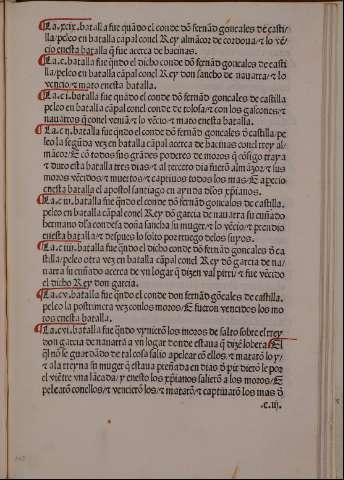 La .xcix. batalla fue quãdo el conde dõ fernãd gonçales de casti/
lla/peleo en batalla cãpal conel Rey almãcor de cordoua/⁊ lo vẽ/
cio enesta batalla q̃ fue acerca de hacinas.
La .c. batalla fue quãdo el dicho conde dõ fernãd gonçales de casti
lla/peleo en batalla cãpal conel Rey don sancho de nauarra/⁊ lo
vencio/⁊ mato enesta batalla.
La .ci. batalla fue quãdo el conde dõ fernãd gonçales de castilla
peleo en batalla cãpal conel conde de tolosa/⁊ con los gascones/⁊
nauarros q̃ conel veniã/⁊ lo vẽcio/⁊ mato enesta batalla.
La .cij. batalla fue quãdo el conde dõ fernãd gonçales d̃ castilla/pe
leo la segũda vez en batalla cãpal acerca de hacinas conel rey al/
mãçor/E cõ todos sus grãdes poderes de moros q̃ cõsigo traya
⁊ duro esta batalla tres dias/⁊ al tercero dia fuerõ almãçor/⁊ sus
moros vẽcidos/⁊ muertos/⁊ captiuos todos los mas/E apecio
enesta batalla el apostol santiago en ayuda dlos xp̃ianos.
La .ciij. batalla fue q̃ndo el conde dõ fernãd gonçales de castilla.
peleo en batalla cãpal conel Rey dõ garcia de nauarra su cuñado
hermano dla condesa doña sancha su muger/⁊ lo vẽcio/⁊ prendio
enesta batalla/⁊ despues lo solto por ruego delos suyos.
La .ciiij. batalla fue q̃ndo el dicho conde dõ fernãd gonçales d̃ ca
stilla/peleo otra vez en batalla cãpal conel Rey dõ garcia de na/
uarra su cuñado acerca de vn logar q̃ dizen val pirri/⁊ fue vẽcido
el dicho Rey don garcia.
La .cv. batalla fue q̃ndo el conde don fernãd gõnçales de castilla.
peleo la postrimera vez conlos moros/E fueron vencidos los mo
ros enesta batalla.
La .cvi. batalla fue q̃ndo vynierõ los moros de salto sobre el rrey
don garcia de nauarra a vn logar donde estaua q̃ dizẽ lobera/El
q̃l nõ se guardãdo de tal cosa salio apelear cõ ellos/⁊ matarõ lo y/
⁊ ala rreyna su muger q̃ estaua preñada en dias d̃ pir dierõ le por
el viẽtre vna lãçada/y enesto los xp̃ianos salierõ a los moros/E
pelearõ conellos/⁊ vencierõ los/⁊ matarõ/⁊ captiuarõ los mas d̃
.c.iij.